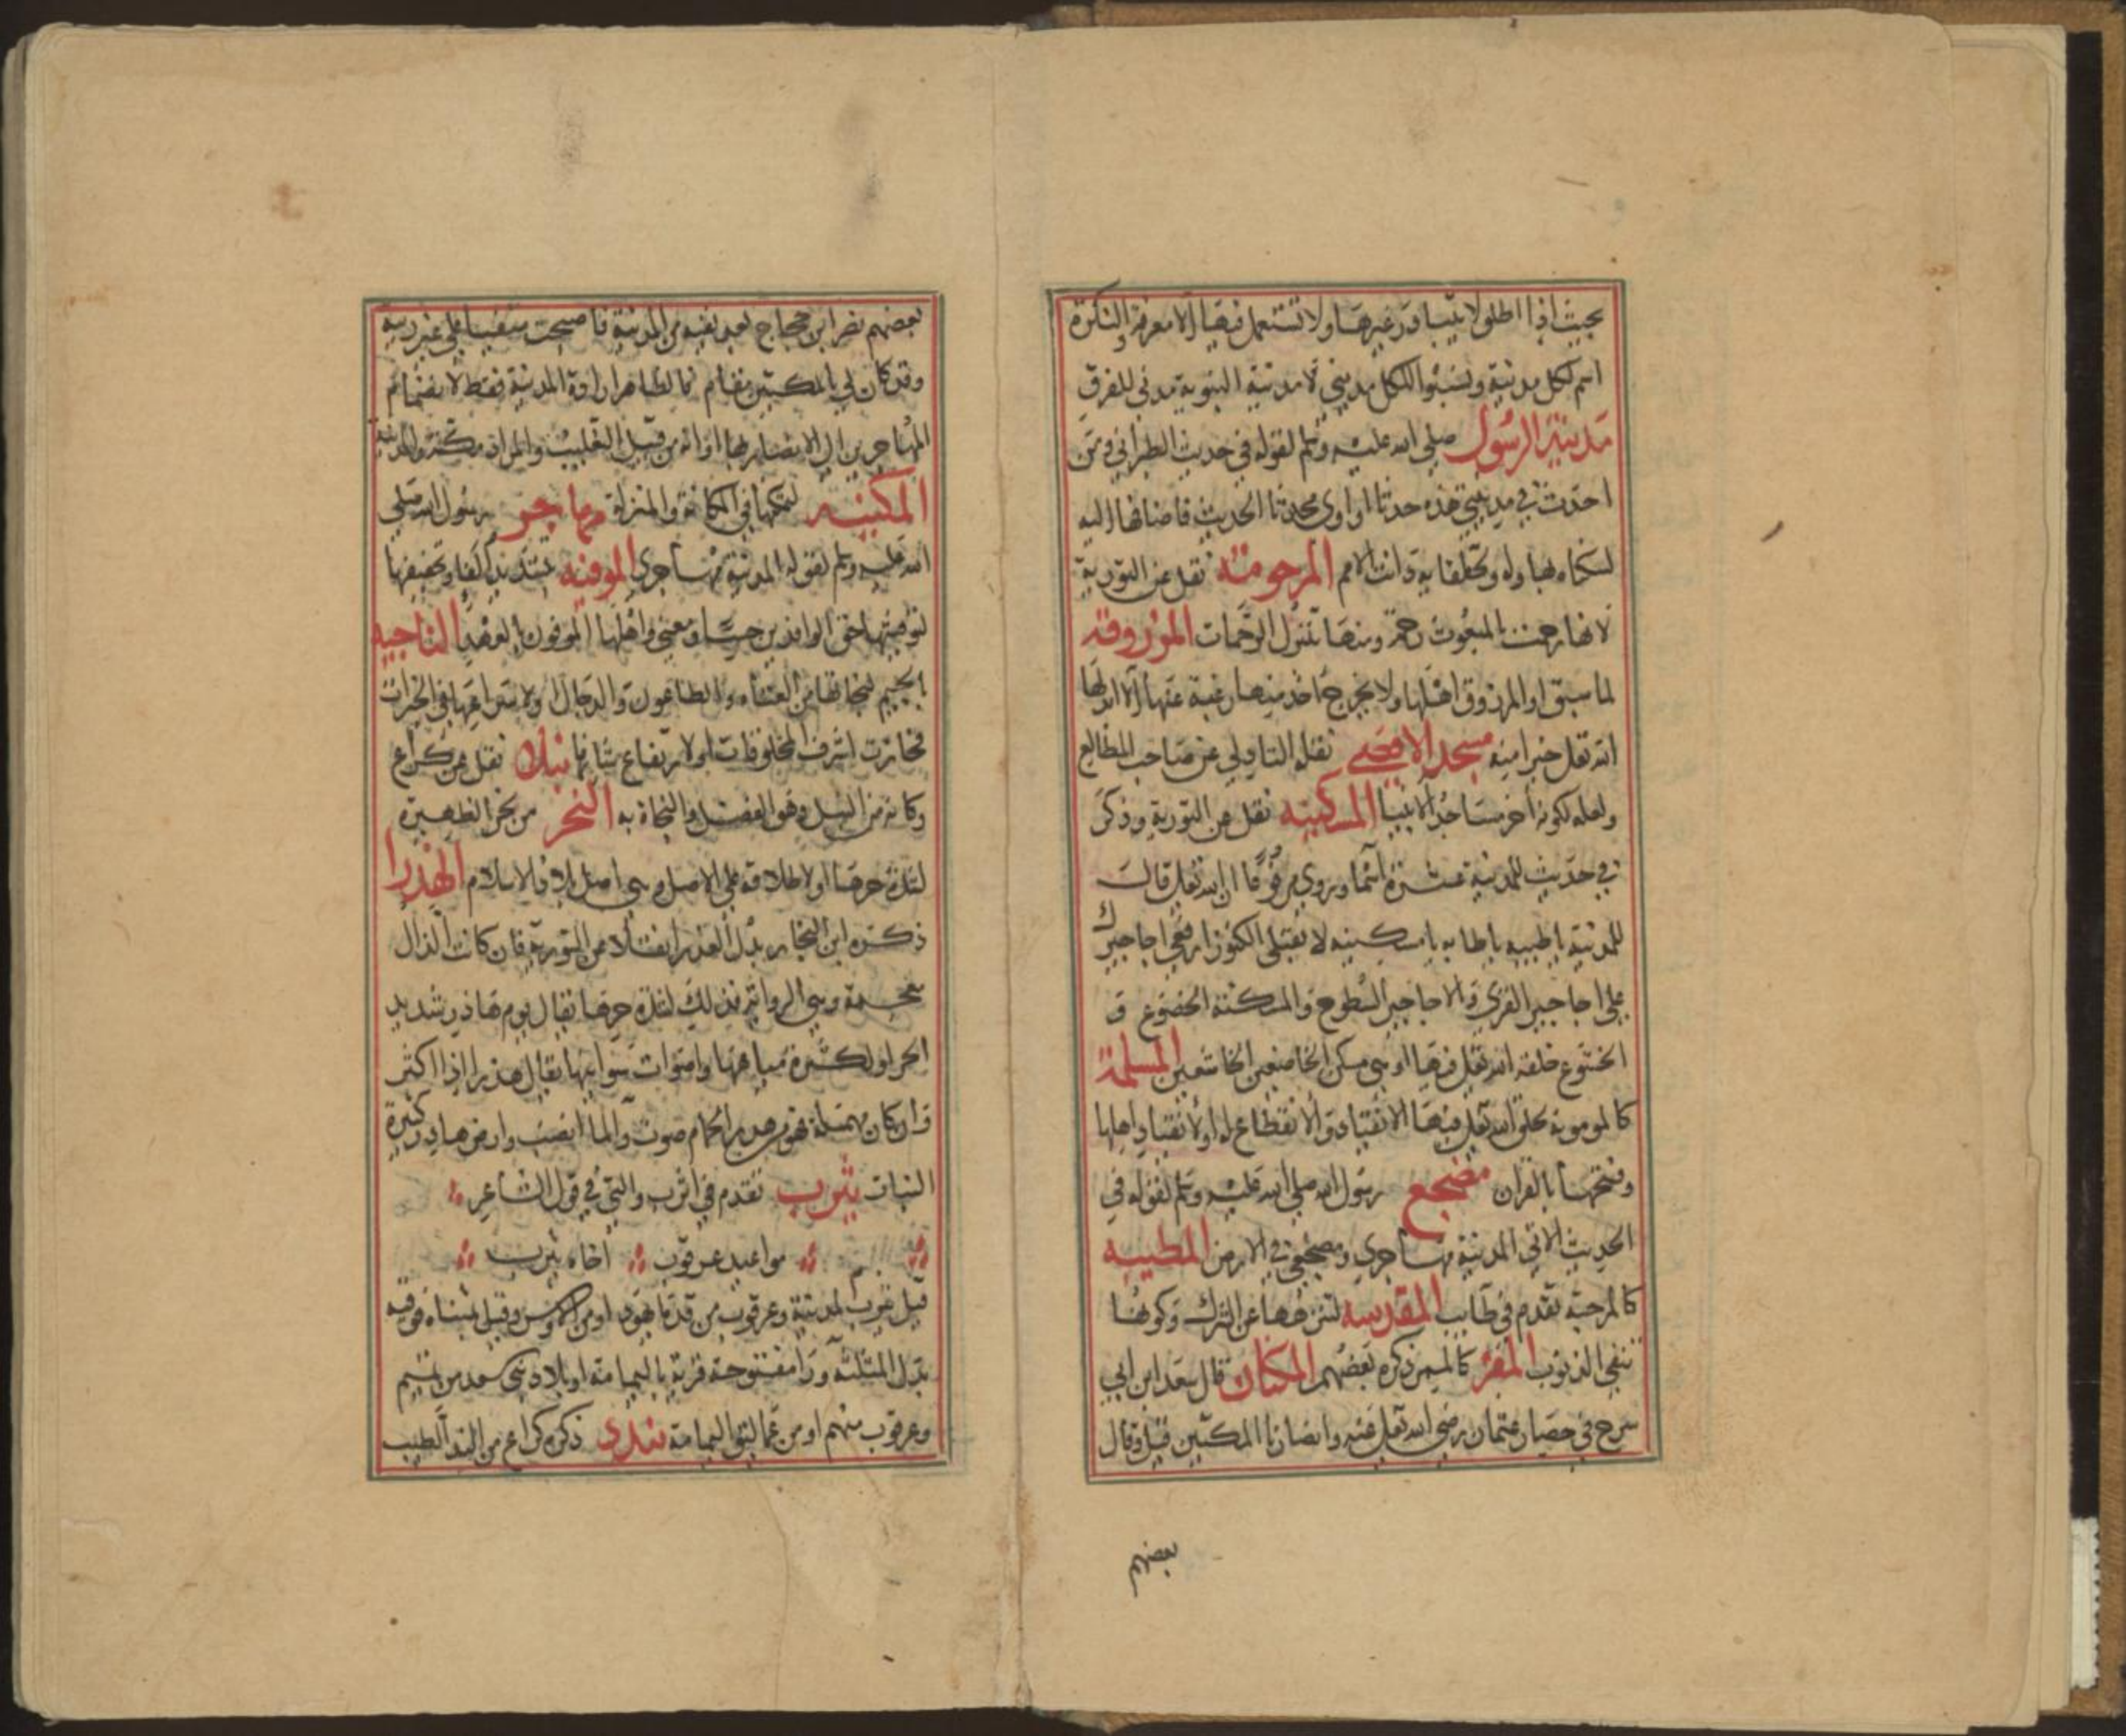 بحيث اذا اطلق لا يتبادر غيرها ولا تستعمل فيها الا معرفة والنكرة
اسم لكل مدينة ونسبوا للكل مديني لا مدينة النبوية مدني للفرق
مدينة الرسول صلى الله عليه وسلم لقوله في حديث الطبراني ومن
احدث في مدينتي هذه حدثا او اوى محدثا الحديث فاضافها اليه
لسكناه بها وله ولخلفايه دانت الامم المرحومة نقل عن التورية
لانها رحمت بالمبعوث رحمة وبها تتنزل الرحمات المرزوقة
لما سبق او المرزوق اهلها ولا يخرج احد منها رغبة عنها الا ابدلها
الله تعلى خيرا منه مسجد الاقصى نقله التادلي عن صاحب المطالع
ولعله لكونه اخر مساجد الانبيا المسكينه نقل عن التورية وذكر
في حديث للمدينة عشرة اسما وروي مرفوعا ان الله تعلى قال
للمدينة يا طيبه يا طابه يا مسكينه لا تقبلي الكنوز ارفعي اجاجيرك
على اجاجير القرى والاجاجير السطوح والمسكنة الخضوع و
الخشوع خلقه الله تعلى فيها او هي مسكن الخاضعين الخاشعين المسلمة
كالمومنه لخلق الله تعلى فيها الانقياد والانقطاع له او لانقياد اهلها
وفتحها بالقران مضجع رسول الله صلى الله عليه وسلم لقوله في
الحديث الاتي المدينة مهاجري ومضجعي في الارض المطيبه
كالمرحبة تقدم في طايب المقدسه لتنزهها عن الشرك وكونها
تنفي الذنوب المقر كالممر ذكره بعضهم المكتان قال سعد ابن ابي
سرح في حصار عثمان رضي الله تعلى عنه وانصارنا بالمكتين قيل وقال
بعضهم
بعضهم نصر ابن حجاج بعد نفيه من المدينة فاصبحت منفيا على غير ريبة
وقد كان لي بالمكتين مقام فالظاهر ارادة المدينة فقط لانضمام
المهاجرين الى الانصار بها او انه من قبيل التغليب والمراد مكة والمدينة
المكينه لتمكنها في المكانة والمنزلة مهاجر رسول الله صلى
الله عليه وسلم لقوله المدينة مهاجري الموفيه بتشديد الفا وتخفيفها
لتوفيتها حق الوافدين حسا ومعنى واهلها الموفون بالعهد الناجيه
بالجيم لنجاتها من العتاه والطاعون والدجال ولاسراعها في الخيرات
فحازت اشرف المخلوقات او لارتفاع شانها نبلا نقل عن كراع
وكانه من النبل وهو الفضل والنجاة به النحر من نحر الظهيرة
لشدة حرها او لاطلاقه على الاصل وهي اصل بلاد الاسلام الهذرا
ذكره ابن النجار بدل العذرا نقلا عن التورية فان كانت الذال
معجمة وهي الرواية فذلك لشدة حرها يقال يوم هاذر شديد
الحر او لكثرة مياهها واصوات سوانيها يقال هذر اذا اكثر
وان كان مهملة فهو من هدر الحمام صوت والما انصب وارض هادرة كثيرة
النبات يثرب تقدم في اثرب والتي في قول الشاعر
مواعيد عرقوب اخاه يثرب
قيل يثرب المدينة وعرقوب من قدما يهود او من الاوس وقيل بمثناة فوقية
بدل المثلثة ورا مفتوحة قرية باليمامة او بلاد بني سعد من تميم
وعرقوب منهم او من عماليق اليمامة يندد ذكره كراع من الند الطيب